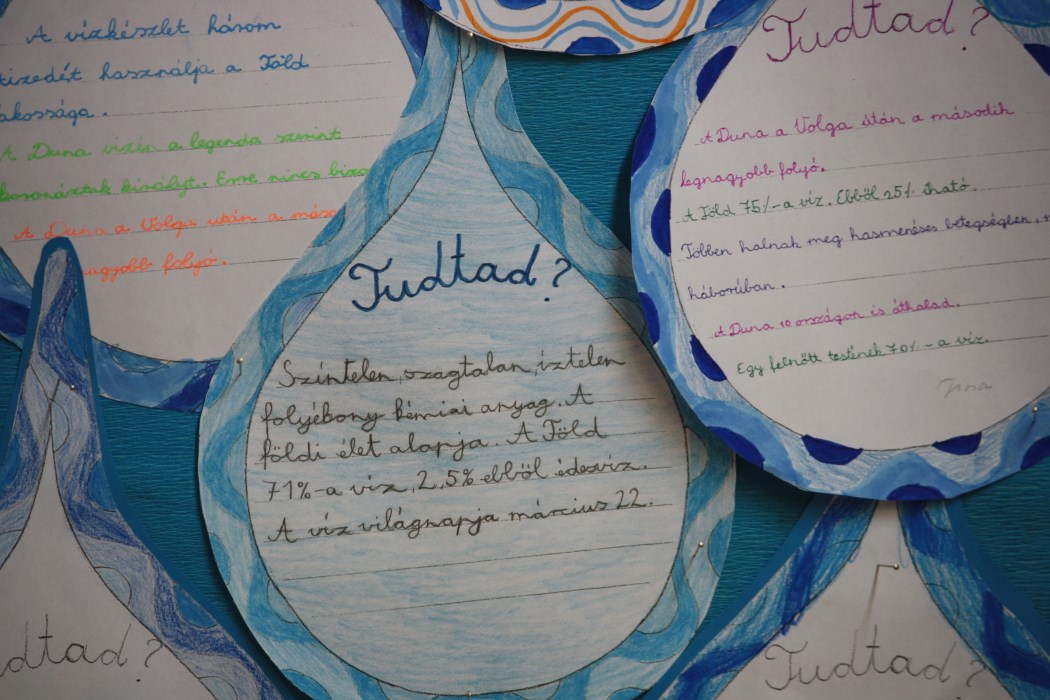 A vízkészlet három
tizedét használja a Föld
lakossága.
A Duna vizén a legenda szerint
királyt. Erre nincs
A Duna a Volga után a
folyó.
Tudtad?
Színtelen, szagtalan, íztelen
folyébony kémiai anyag. A
földi élet alapja. A Föld
71%-a víz, 2,5% ebből édesvíz.
A víz világnapja március 22.
Tudtad?
A Duna a Volga után a második
legnagyobb folyó.
A Föld 75%-a víz. Ebből 25% iható.
Többen halnak meg hasmenéses betegségben,
háborúban.
A Duna 10 országon is áthalad.
Egy felnőtt testének 70%-a víz.
dtad?
Tudtad?